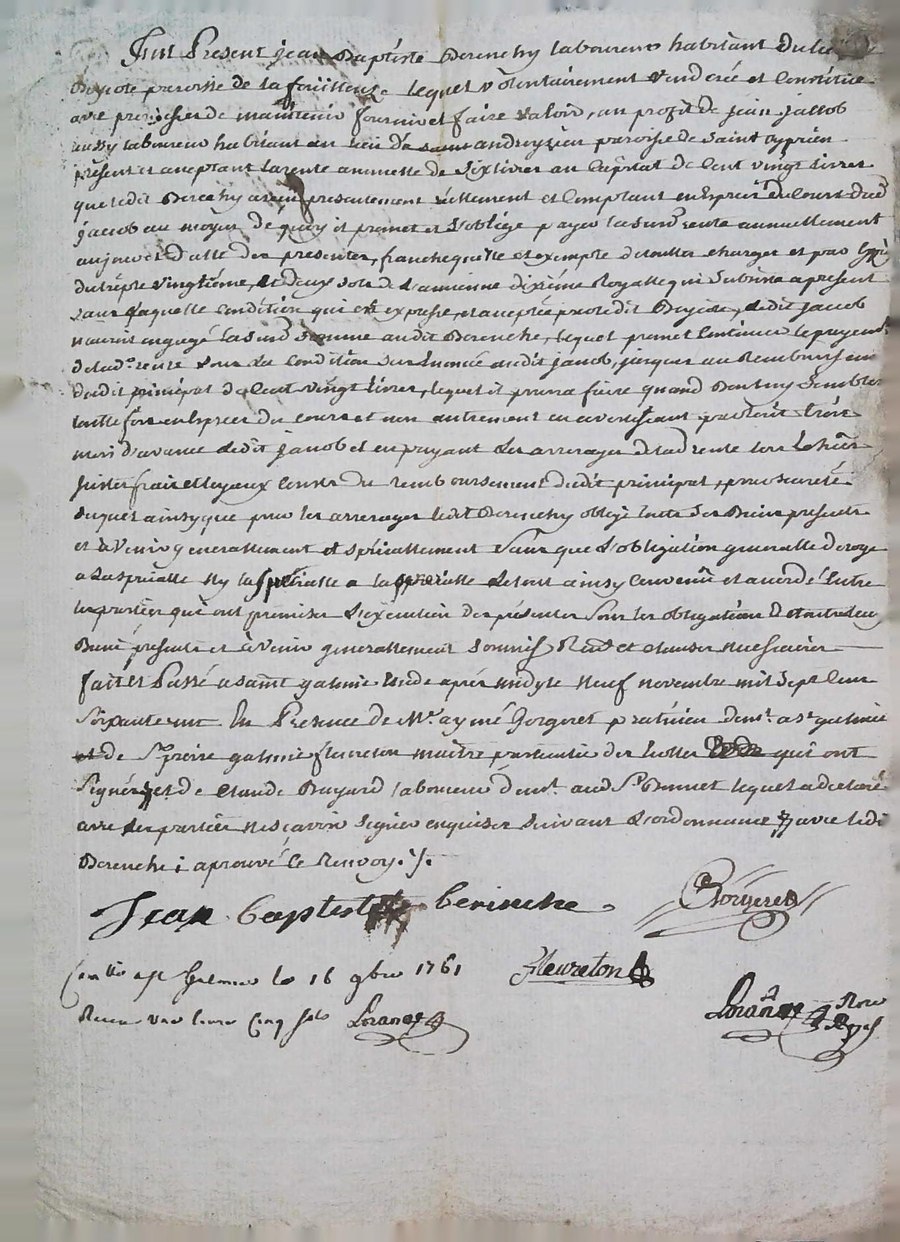 Fut Present jean Baptiste Berenchy laboureur habitant du lieu
paroisse de la fouillouse lequel volontairement vend crée et Constitue
avec promesse de maintenir fournir et faire valoir, au profit de jean jacob
aussy laboureur habitant au lieu de andrezieu paroisse de Saint cyprien
présent et aceptant la rente annuelle de Six livres au Capital de Cent vingt livres
que ledit Berenchy a reçu presentement réellement et Comptant en Espece du Cours dud
jacob au moyen de quoy il promet et s'oblige payer la susd rente annuellement
aujourd'huy datte des presentes, franche quitte et exempte de toutte charges et par
vingtième, et deux sols de l'ancienne dixième Royalle qui Subsiste a present
sans laquelle Condition qui est expresse, et aceptée par ledit ledit jacob
n'auroit engagé la susd Somme audit Berenche, lequel promet Continuer le payem
de lad. rente sous la Condition sus Enoncé audit jacob, jusques au Remboursem
dudit principal de Cent vingt livres, lequel il pourra faire quand bon luy Semblera
en Especes du cours et non autrement en avertissant par écrit trois
mois d'avance ledit jacob et en payant les arrerages de lad rente lors Echus
justes frais et loyaux Cousts du remboursement dudit principal, pour sureté
duquel ainsy que pour les arrerages ledit Berenchy oblige touts ses Biens presents
et à venir généralement et spécialement Sans que l'obligation generalle deroge
a la specialle ny la specialle a la le tout ainsy Convenu et accordé Entre
les parties qui ont promises l'exécution des présentes Sous les obligations de touts leurs
Biens présents et à venir generallement Soumis, Ren et clauses necessaires
fait et Passé a Saint galmier Etude après midy le neuf novembre mil Sept Cent
Soixante un En Presence de Mr aymé Gorgeret praticien demt a St galmier
et de Sr pierre galmier fleureton maitre particulier des qui ont
Signés et de Claude Bayard laboureur demt aud St Bonnet lequel a declaré
avec les parties ne scavoir signer enquises suivant l'ordonnance avec ledi
Berenche : aprouvé le Renvoy ./.
Jean baptiste berinche
Gorgeret
Conllé a St Galmier le 16 9bre 1761 fleureton
Receu une livre Cinq sols